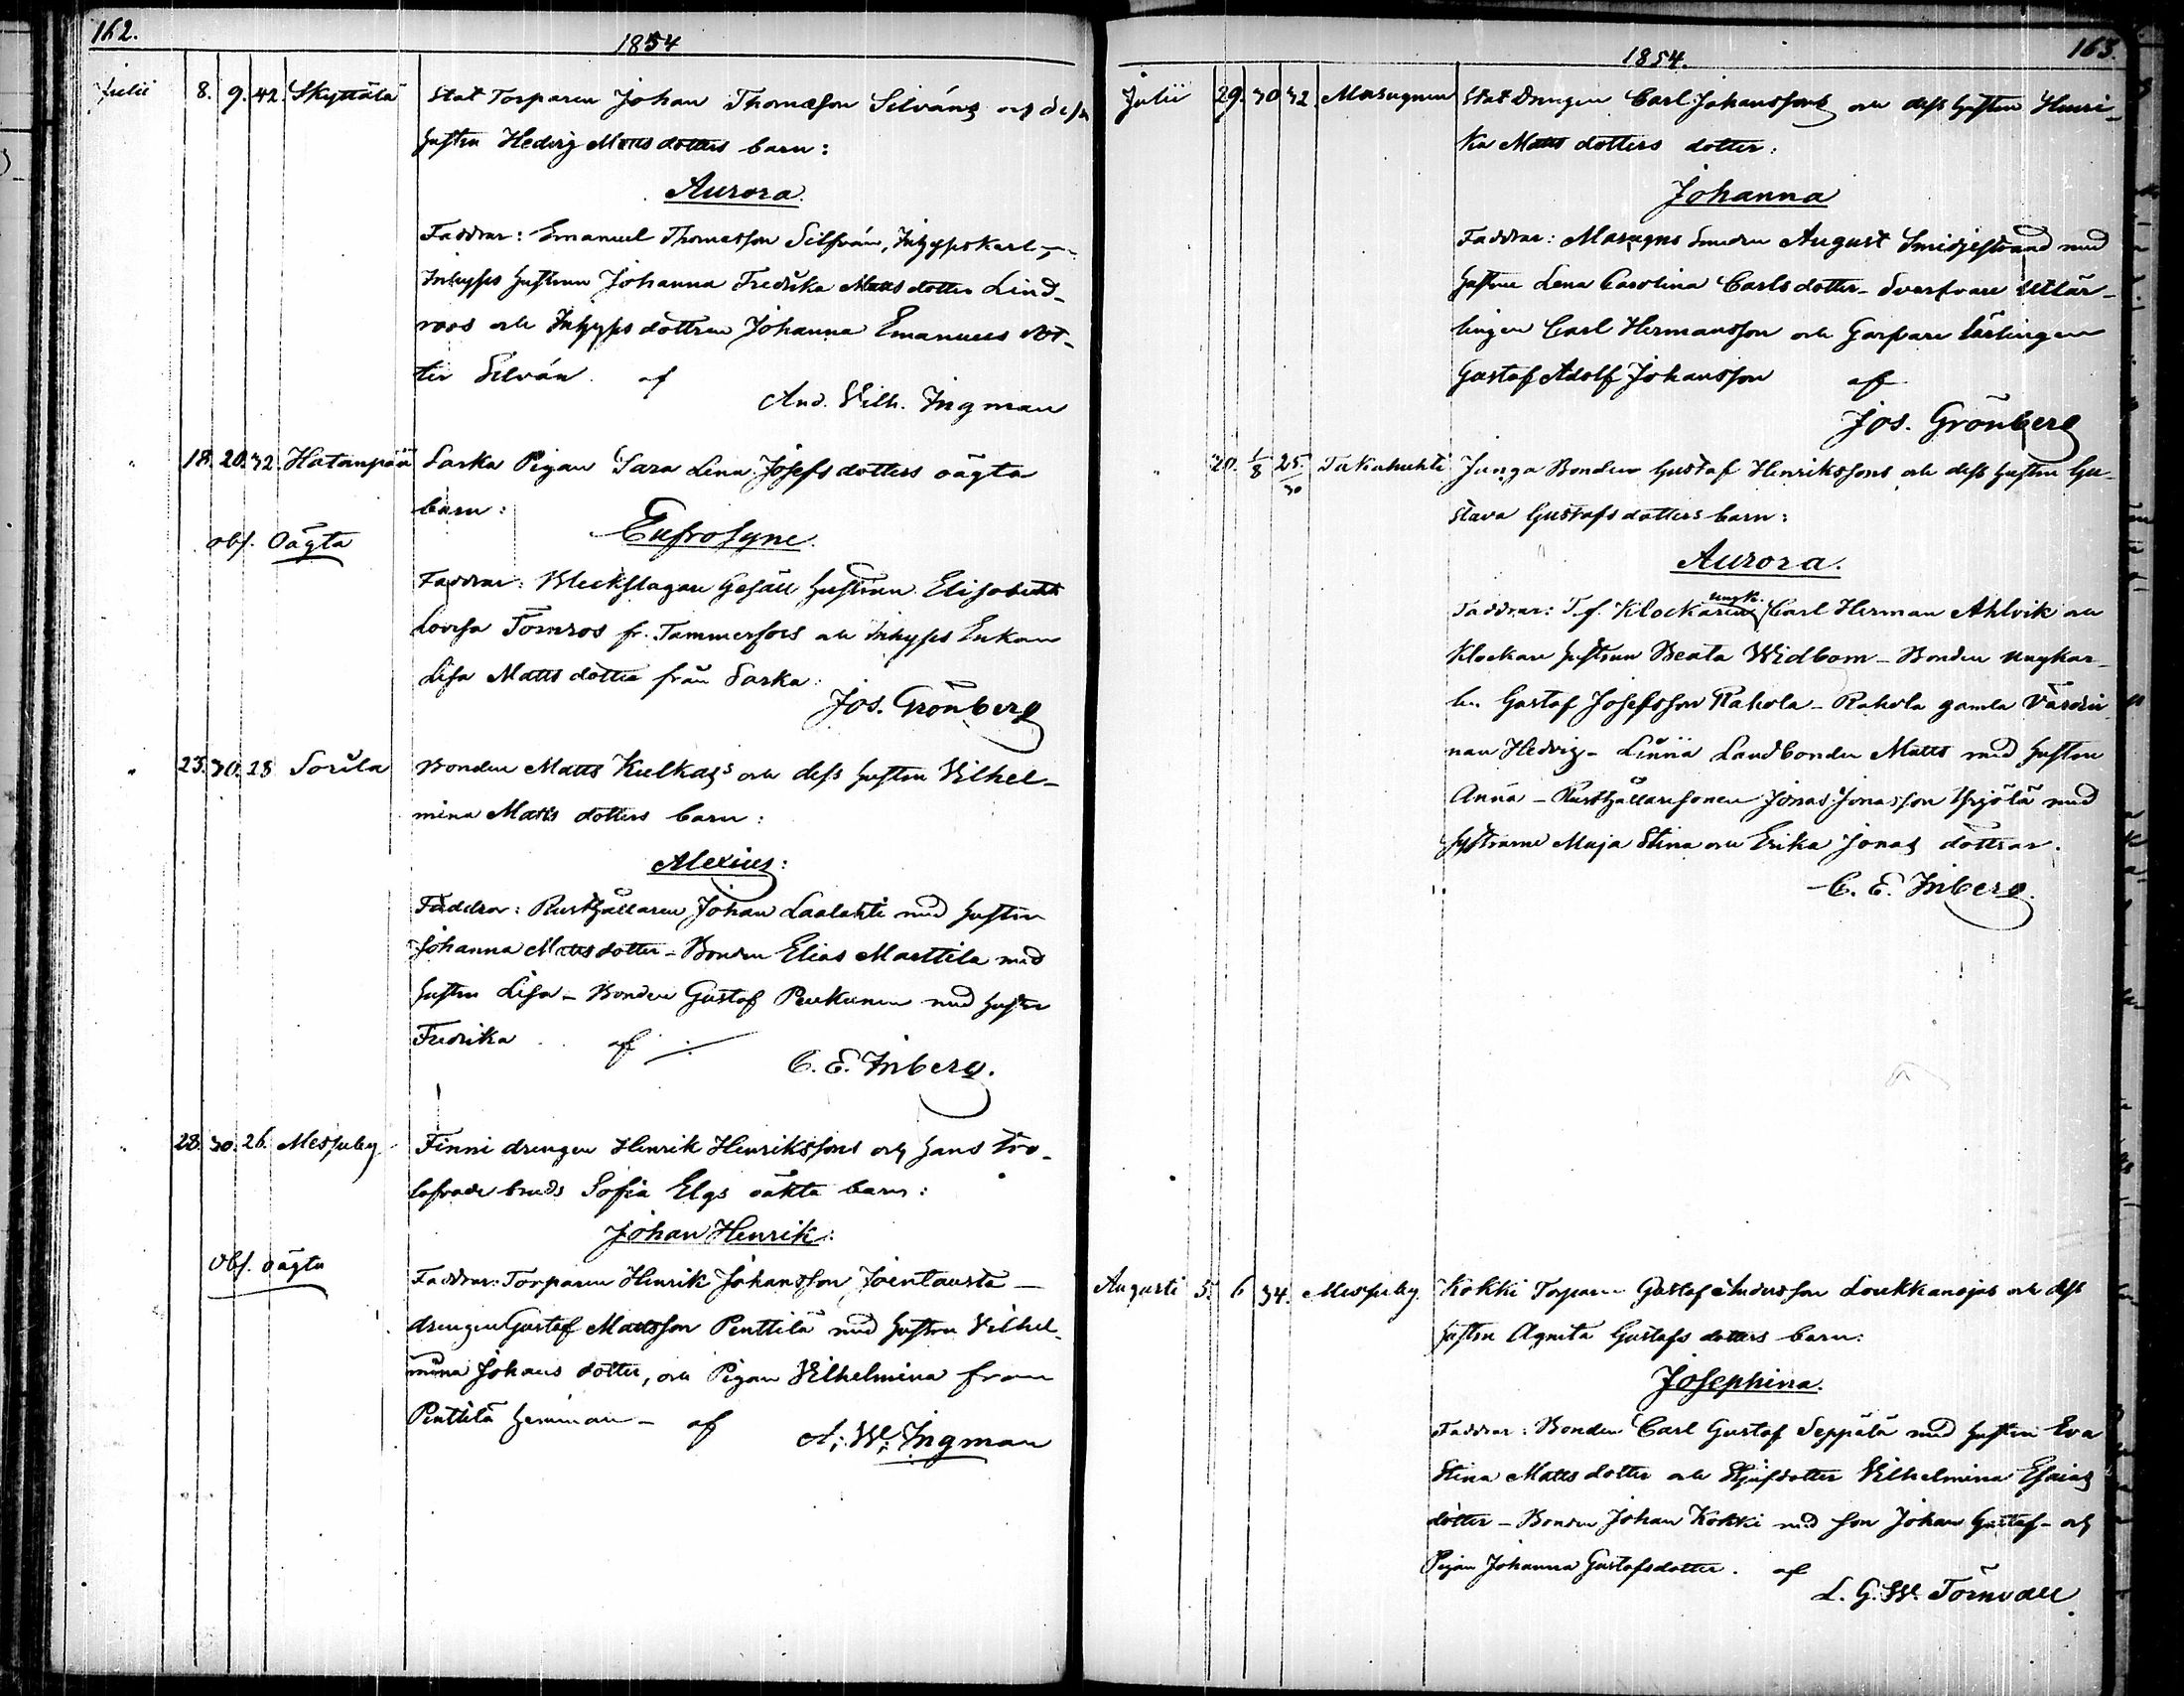 162.
1854
Julii 8. 9. 42. Skyttälä Stat Torparen Johan Thomasson Silváns och dess
hustru Hedvig Matts dotters barn:
Aurora.
Faddrar: Emanuel Thomasson Silfván, Inhyseskarl,
Inhyses hustrun Johanna Fredrika Matts dotter Lind-
roos och Inhyses dottren Johanna Emanuels dot-
ter Silván. af
And. Vilh. Ingman
" 18. 20. 32. Hatanpää Sarka Pigan Sara Lena Josefs dotters oägta
barn:
obs. Oägta
Eufrosyne.
Faddrar: Bleckslagare Gesäll hustrun Elisabeth
Lovisa Törnros fr. Tammerfors och Inhyses Enkan
Lisa Matts dotter från Sarka:
Jos. Grönberg
" 23. 30. 28 Sorila Bonden Matts Kulkas och dess hustru Vilhel-
mina Matts dotters barn:
Alexius:
Faddrar: Rusthållaren Johan Laalahti med hustru
Johanna Matts dotter - Bonden Elias Marttila med
hustru Lisa - Bonden Gustaf Penkunen med hustru
Fredrika af
C. E. Inberg.
" 28. 30. 26. Messuby Finni drengen Henrik Henrikssons och hans tro-
lofvade bruds Sofia Elgs oäkta barn:
Johan Henrik:
Obs. oägta
Faddrar: Torparen Henrik Johansson Joentausta -
drengen Gustaf Mattsson Penttilä med hustru Vilhel-
mina Johans dotter, och Pigan Vilhelmina från
Penttilä hemman - af
A. W. Ingman
163.
1854.
Julii 29. 30 32 Masugnen Stat Drengen Carl Johanssons och dess hustru Henri-
ka Matts dotters dotter:
Johanna
Faddrar: Masugns Smeden August Smidjestrand med
hustru Lena Carolina Carls dotter - Svarfvare Utlär-
lingen Carl Hermansson och Garfvare lärlingen
Gustaf Adolf Johansson af
Jos. Grönberg
" 20. 1/8 25./30 Takahuhti Junga Bonden Gustaf Henrikssons och dess hustru Gu-
stava Gustafs dotters barn:
Aurora.
Faddrar: T.f. Klockaren ungk. Carl Herman Ahlvik och
Klockare hustrun Beata Widbom - Bonden ungkar-
len Gustaf Josefsson Rahola - Rahola gamla Värdin-
nan Hedvig - Linna Landbonden Matts med hustru
Anna - Rusthållaresonen Jonas Jonasson Yrjölä med
systrarne Maja Stina och Erika Jonas döttrar.
C. E. Inberg.
Augusti 5. 6 34. Messuby Kokki Torparen Gustaf Andersson Loukkanojas och dess
hustru Agneta Gustafs dotters barn:
Josephina.
Faddrar: Bonden Carl Gustaf Seppälä med hustru Eva
Stina Matts dotter och Styfdotter Vilhelmina Esaias
dotter - Bonden Johan Kokki med son Johan Gustaf - och
Pigan Johanna Gustafsdotter. af
L. G. W. Törnvall